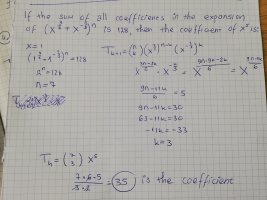 If the sum of all coefficients in the expansion
of (x^{3/2} + x^{-1/3})^n is 128, then the coefficient of x^5 is:
x=1
(1^{3/2} + 1^{-1/3})^n = 128
2^n = 128
n = 7
T_{k+1} = (n k) (x^{3/2})^{n-k} (x^{-1/3})^k
x^{(3n-3k)/2} · x^{-k/3} = x^{(9n-9k-2k)/6} = x^{(9n-11k)/6}
(9n-11k)/6 = 5
9n-11k=30
63-11k=30
-11k=-33
k=3
T_4 = (7 3) x^5
(7·6·5)/(3·2) = 35 is the coefficient